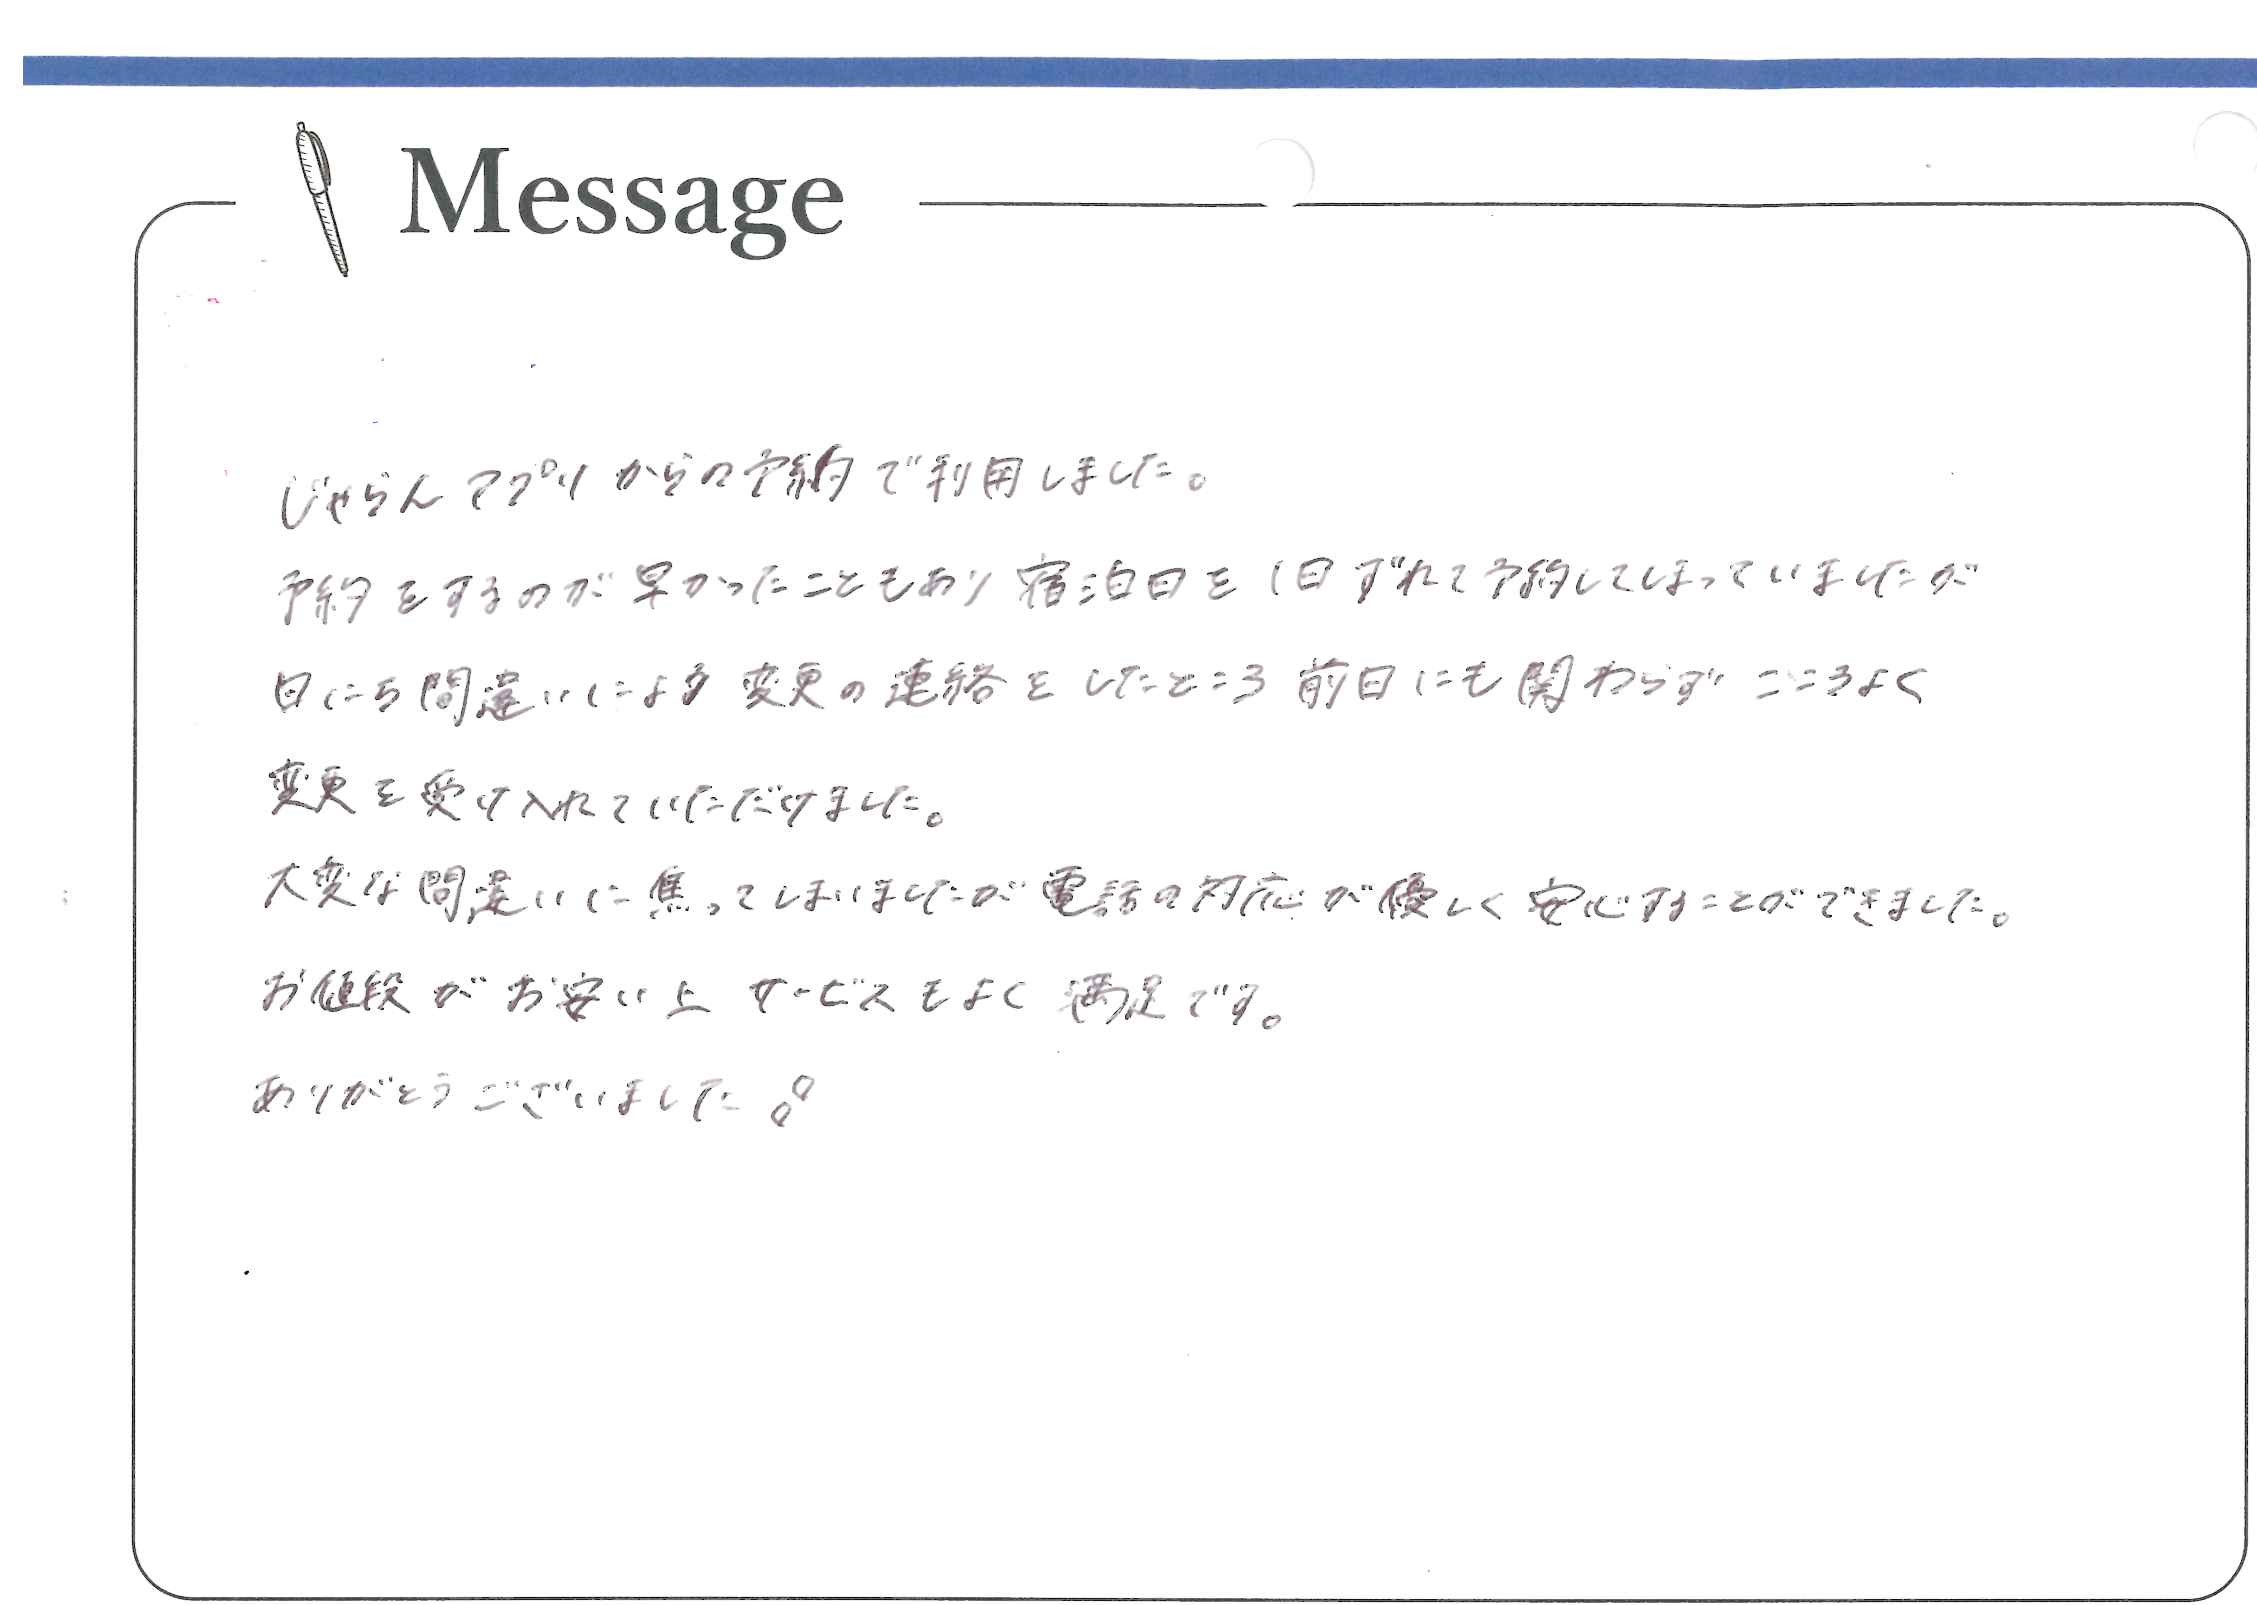 Message
じゃらんアプリからの予約で利用しました。
予約をするのが早かったこともあり宿泊日を1日ずれて予約してしまっていましたが
日にち間違いによる変更の連絡をしたところ前日にも関わらずこころよく
変更を受け入れていただけました。
大変な間違いに焦ってしまいましたが電話の対応が優しく安心することができました。
お値段がお安い上サービスもよく満足です。
ありがとうございました